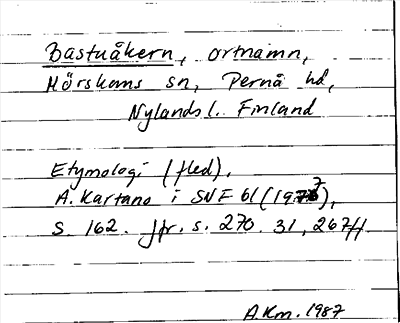 Bastuåkern, ortnamn,
Mörskoms sn, Pernå hd,
Nylands l. Finland
Etymologi (fled).
A. Kartano i SNF 61 (1977),
s 162. Jfr. s. 270. 31, 267ff.
A.Km. 1987